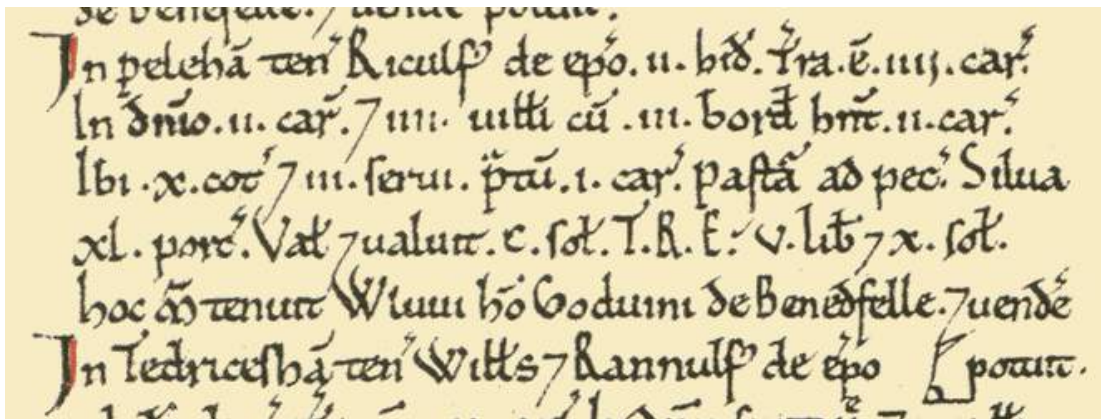 de Benefelle. ⁊ uende potuit.
In peleha̅ ten̛ Riculf᾽ de ep̅o. ii. hid̅. T̅ra. e̅. iiij. car̛.
In dn̅io. ii. car̛. ⁊ iiii. uilłi cu̅. iii. bord̅ hn̅t. ii. car̛.
Ibi. x. cot̛ ⁊ iii. serui. p̅tu̅. i. car̛. Pasta̅ ad pec̛. Silua
xl. porc̛. Vał ⁊ ualuit. c. soł. T. R. E.᾽ v. lib̅ ⁊ x. soł.
hoc M̅ tenuit Wluui ho̅ Goduini de Benedfelle. ⁊ uende̛
In Tedricesha̅ ten̛ Wiłłs ⁊ Rannulf᾽ de ep̅o potuit.